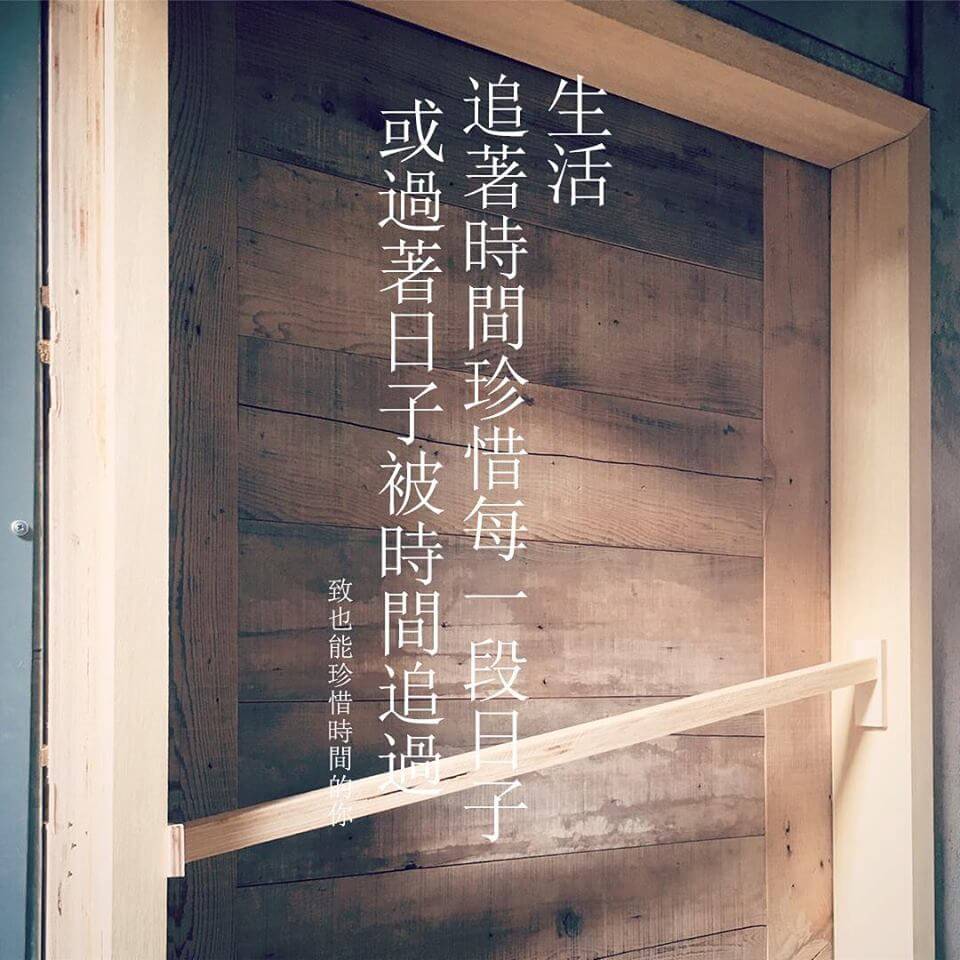 生活
追著時間珍惜每一段日子
或過著日子被時間追過
致也能珍惜時間的你